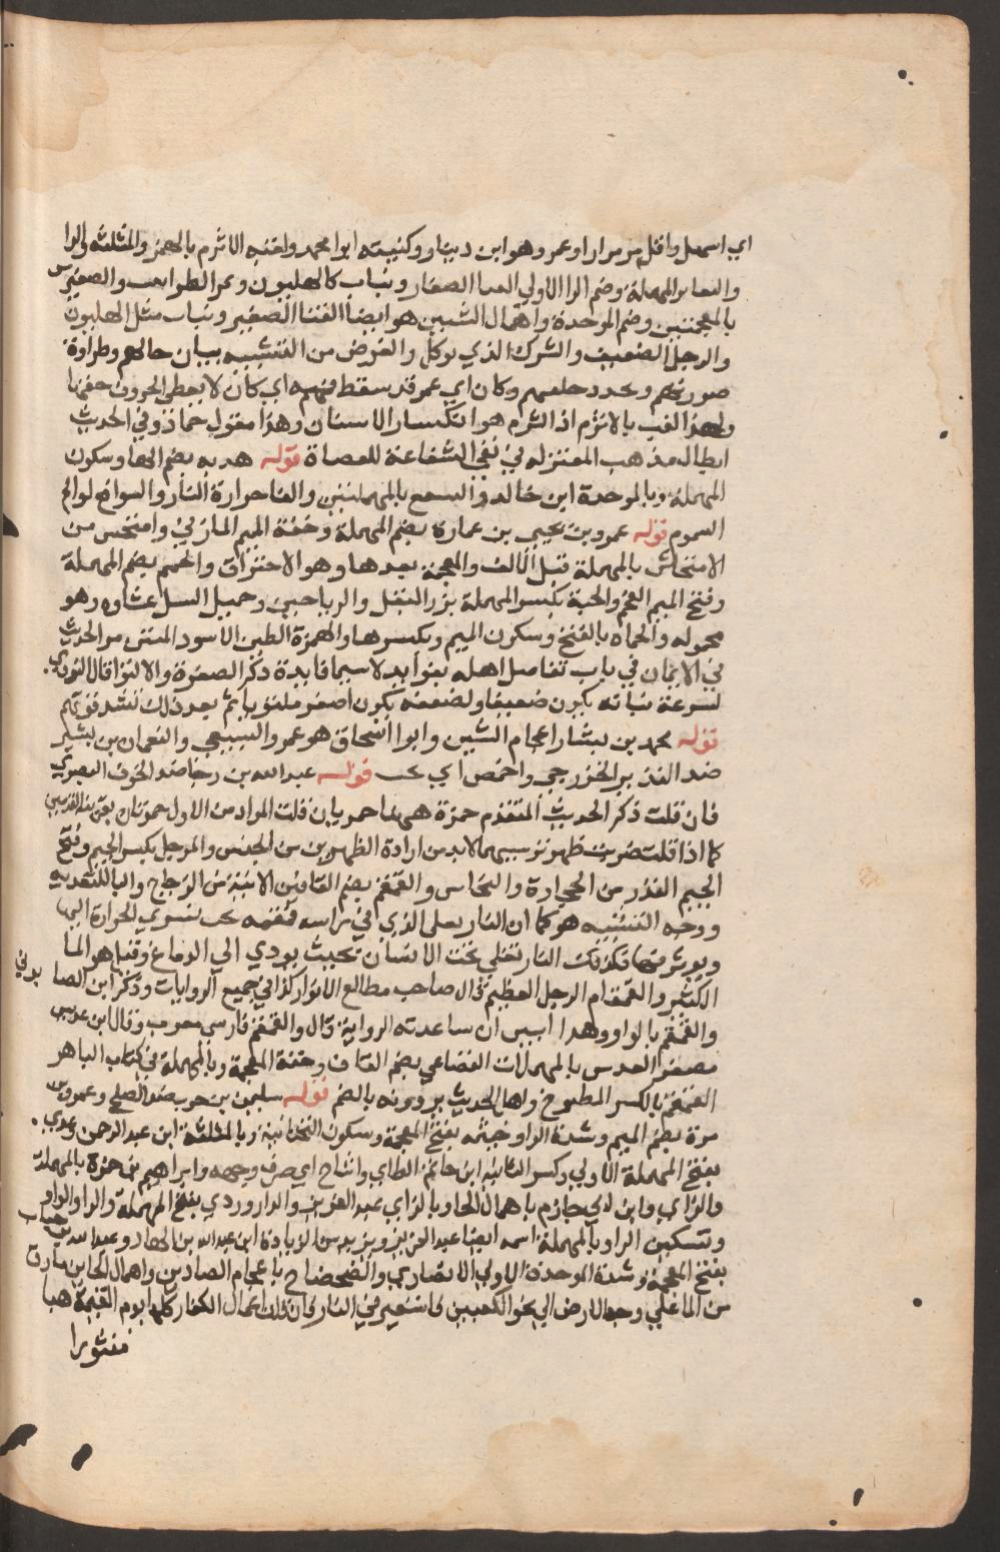 اي اسهل واقل مرمرارا وعمرو هو ابن دينار وكنيته ابوا محمد ولقبه الاثرم بالهمز والمثلثة والرا
بالمهملة وضم الرا الاولي الصغار ونبات كالهليون والصغير
بالمعجمتين وضم الموحدة واهمال الشين هو ايضا القثا الصغير ونبات مثل الهليون
والرجل الضعيف والشرك الذي يوكل والغرض من التشبيه بيان حالهم وطراوة
صورتهم وتجدد خلقهم وكان اي عمرو قد سقط فمه اي كان لا يعطي الحروف حقها
ولهذا القب بالاثرم اذ الثرم هو انكسار الاسنان وهذا مقول حماد وفي الحديث
ابطال مذهب المعتزله في نفي الشفاعة للعصاة قوله هدبه بضم الها وسكون
المهملة وبالموحدة ابن خالد والسفع بالمهملتين والفا حرارة النار والسوافع لوافح
السموم قوله عمرو بن يحيي بن عمارة بضم المهملة وخفة الميم المازني وامتحس من
الامتحاش بالمهملة قبل الالف والمعجمة بعدها وهو الاحتراق والحمم بضم المهملة
وفتح الميم الفحم والحبة بكسر المهملة بزر البقل والرياحين وحميل السيل غثاوه وهو
محموله والحماه بالفتح وسكون الميم وبكسرها والهمزة الطين الاسود المنتن مر الحديث
في الايمان في باب تفاضل اهله بفوايد لاسيما فايدة ذكر الصفرة والالتوا قال النووي
لسرعة نباته يكون ضعيفا ولضعفه يكون اصفر ملتويا ثم بعد ذلك تشد قوتهم
قوله محمد بن بشار اعجام الشين وابوا اسحاق هو عمرو السبيعي والنعمان بن بشير
ضد النذير الخزرجي واخمص اي تحت قوله عبد الله بن رجا ضد الخوف البصري
فان قلت ذكر الحديث المتقدم جمرة هي هنا جمرتان قلت المراد من الاول جمرتان بقرينة القدمين
كما اذا قلت ضربت ظهر ترسيهما لا بد من ارادة الظهرين من الجنس والمرجل بكسر الميم وفتح
الجيم القدر من الحجارة والنحاس والقمقم بضم القافين الانية من الزجاج والبا للتعديه
ووجه التشبيه هو كما ان النار يغلي الذي في راسه
ويوثر فيها كذلك النار تغلي تحت الانسان بحيث يودي الي الدماغ وقيل هو الما
الكثير والقمقام الرجل العظيم قال صاحب مطالع الانوار كذا في جميع الروايات وذكر ابن الصا بوني
والقمقم بالواو وهذا ابين ان ساعدته الرواية قال والقمقم فارسي معرب وقال ابن عديس
مصغر العدس بالمهملات القضاعي بضم القاف وخفة المعجمة وبالمهملة في كتاب الباهر
القمقم بالكسر المطبوخ واهل الحديث يروونه بالضم قوله سليمن بن حرب ضد الصلح وعمرو بن
مرة بضم الميم وشدة الرا وخيثمه بفتح المعجمة وسكون التحتانية وبالمثلثة ابن عبد الرحمن وعدي
بفتح المهملة الاولي وكسر الثانية ابن حاتم الطاي واشاح اي صرف وجهه وابراهيم بن حمزة بالمهملة
والزاي وابن ابي حازم باهمال الحا وبالزاي عبد العزيز والدراوردي بفتح المهملة والرا والواو
وتسكين الرا وبالمهملة اسمه ايضا عبد العزيز ويزيد من الزيادة ابن عبد الله بن الهاد وعبد الله بن خباب
بفتح المعجمة وشدة الموحدة الاولي الانصاري والضحضاح باعجام الضادين واهمال الحاين مارق
من الما علي وجه الارض الي نحو الكعبين فاستعير في النار فان قلت اعمال الكفار كلها يوم القيمة هبا
منثورا